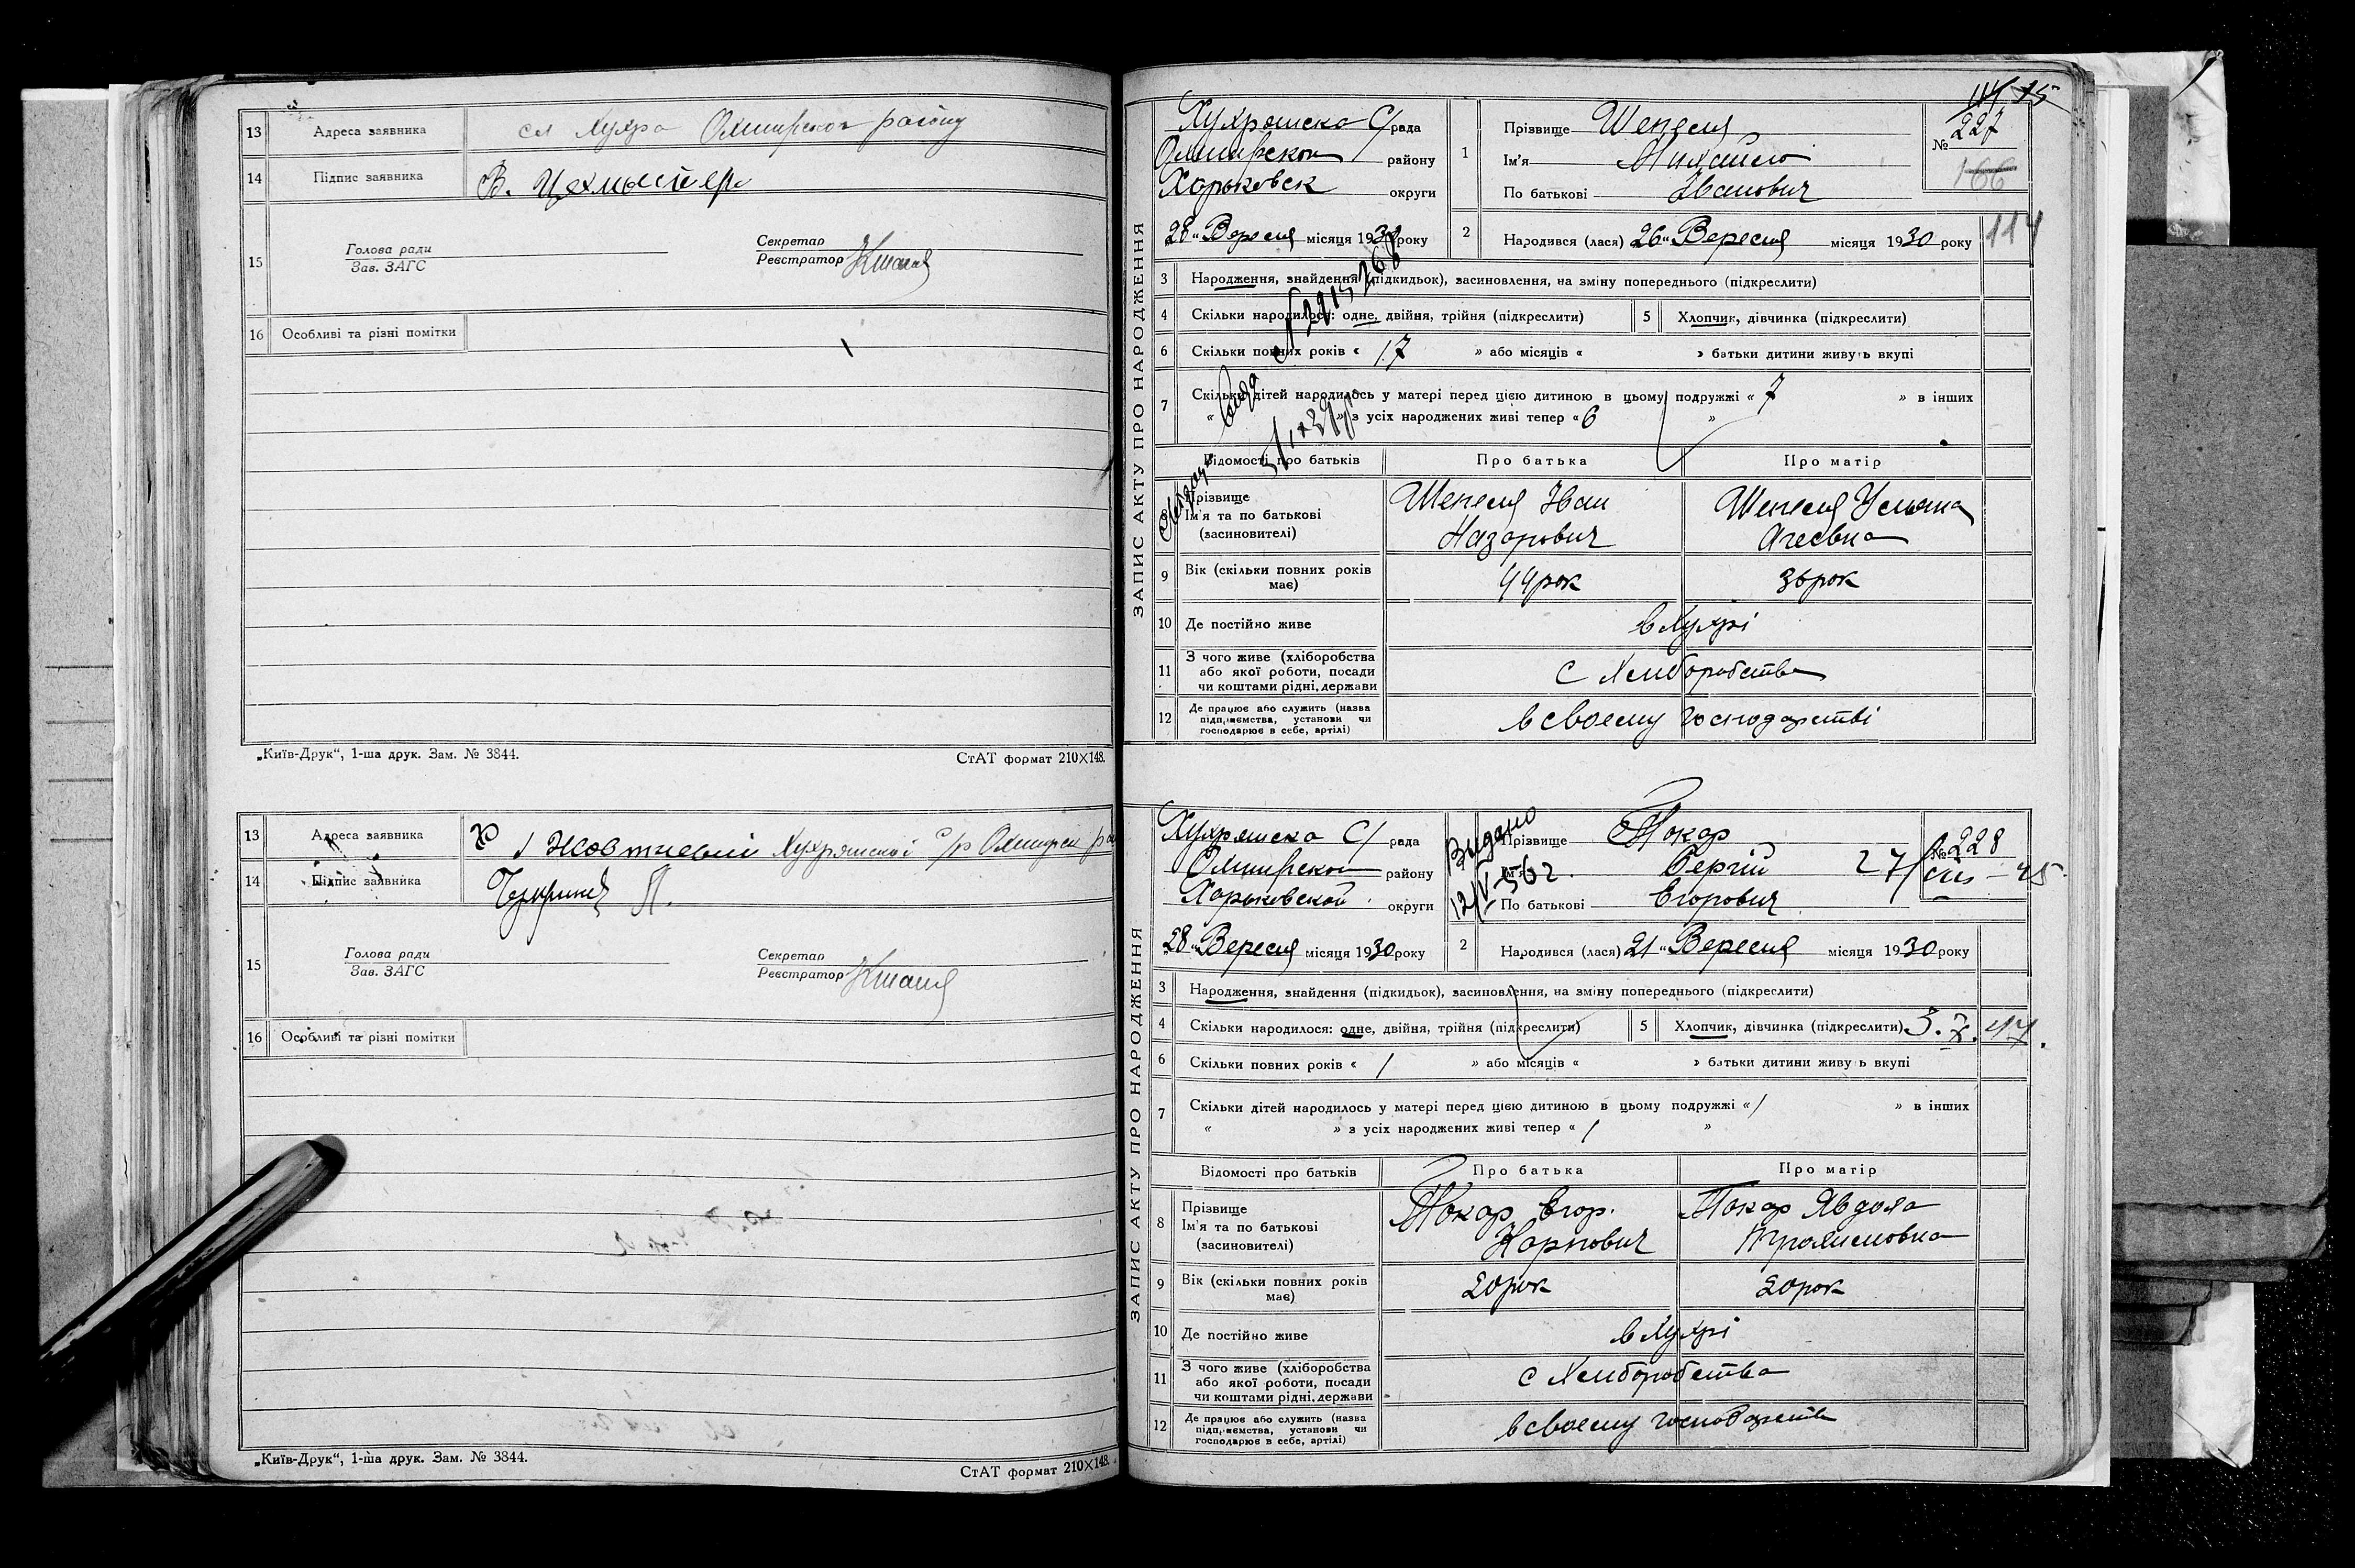 13 Адреса заявника сл Хухра Охтирског району
14 Підпис заявника В. Цехмистер
15 Голова ради
Зав. ЗАГС
Секретар
Реєстратор
16 Особливі та різні помітки
„Київ-Друк“, 1-ша друк. Зам. № 3844.
СтАТ формат 210×148.
13 Адреса заявника х 1 Жовтневий Хухрянської с/р Охтирск
14 Підпис заявника
15 Голова ради
Зав. ЗАГС
Секретар
Реєстратор
16 Особливі та різні помітки
„Київ-Друк“, 1-ша друк. Зам. № 3844.
СтАТ формат 210×148.
ЗАПИС АКТУ ПРО НАРОДЖЕННЯ
Хухрянска С/рада
Охтирског району
Харьковск округи
„28“ Вересня місяця 1930 року
1 Прізвище Шепеля
Ім'я Михайло
По батькові Іванович
№ 227
166
114
2 Народився (лася) 26 „ Вересня місяця 1930 року
3 Народження, знайдення (підкидьок), засиновлення, на зміну попереднього (підкреслити)
4 Скільки народилося: одне, двійня, трійня (підкреслити)
5 Хлопчик, дівчинка (підкреслити)
6 Скільки повних років « 17 » або місяців « » батьки дитини живуть вкупі
7 Скільки дітей народилось у матері перед цією дитиною в цьому подружжі « 7 » в інших
« » з усіх народжених живі тепер « 6 »
Відомості про батьків Про батька Про матір
8 Прізвище
Ім'я та по батькові
(засиновителі)
Шепеля Іван
Назарович
Шепеля Уляна
Агеевна
9 Вік (скільки повних років має) 44 рок 36 рок
10 Де постійно живе в Хухрі
11 З чого живе (хліборобства
або якої роботи, посади
чи коштами рідні, держави
с Хлиборобства
12 Де працює або служить (назва
підприємства, установи чи
господарює в себе, артілі)
в своему господарстві
ЗАПИС АКТУ ПРО НАРОДЖЕННЯ
Хухрянска С/рада
Охтирског району
Харьковской округи
„28“ Вересня місяця 1930 року
Видано
12/V-56 г.
Прізвище Токар
Ім'я Сергій
По батькові Егорович
№ 228
2 Народився (лася) 21 „ Вересня місяця 1930 року
3 Народження, знайдення (підкидьок), засиновлення, на зміну попереднього (підкреслити)
4 Скільки народилося: одне, двійня, трійня (підкреслити)
5 Хлопчик, дівчинка (підкреслити) 3. X. 47.
6 Скільки повних років « 1 » або місяців « » батьки дитини живуть вкупі
7 Скільки дітей народилось у матері перед цією дитиною в цьому подружжі « 1 » в інших
« » з усіх народжених живі тепер « 1 »
Відомості про батьків Про батька Про матір
8 Прізвище
Ім'я та по батькові
(засиновителі)
Токар Егор.
Карпович
Токар Явдоха
9 Вік (скільки повних років має) 20 рок 20 рок
10 Де постійно живе в Хухрі
11 З чого живе (хліборобства
або якої роботи, посади
чи коштами рідні, держави
с Хлиборобства
12 Де працює або служить (назва
підприємства, установи чи
господарює в себе, артілі)
в своему господарстві